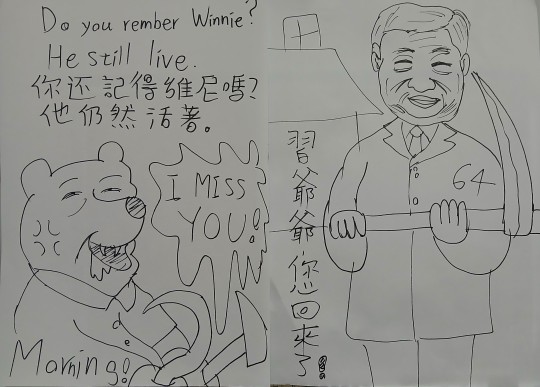 Do you rember Winnie?
He still live.
你还記得維尼嗎?
他仍然活著。
I MISS
YOU!
Morning!
64
習爺爺,您回來了!!!